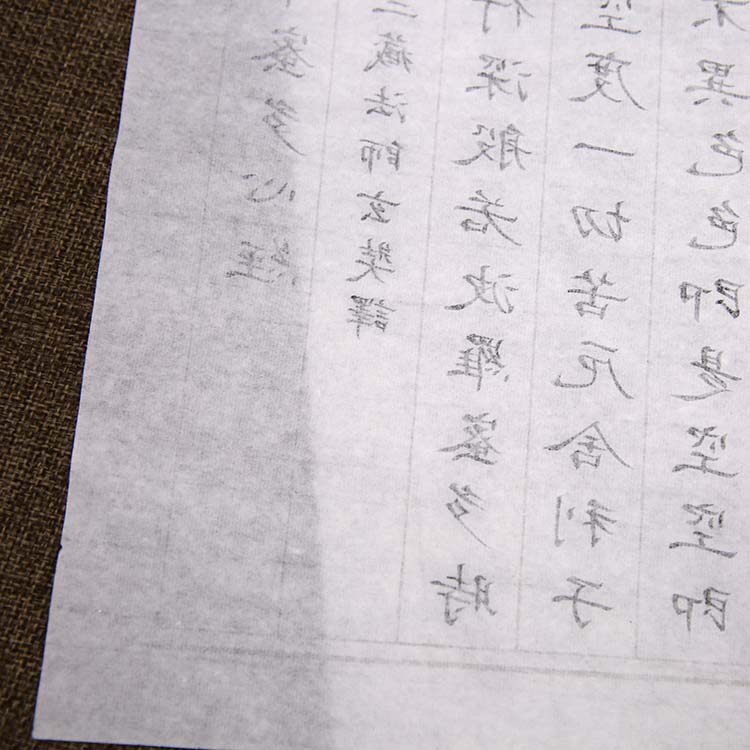 蜜多心經
三藏法師玄奘譯
行深般若波羅蜜多時
空度一切苦厄舍利子
不異色色即是空空即